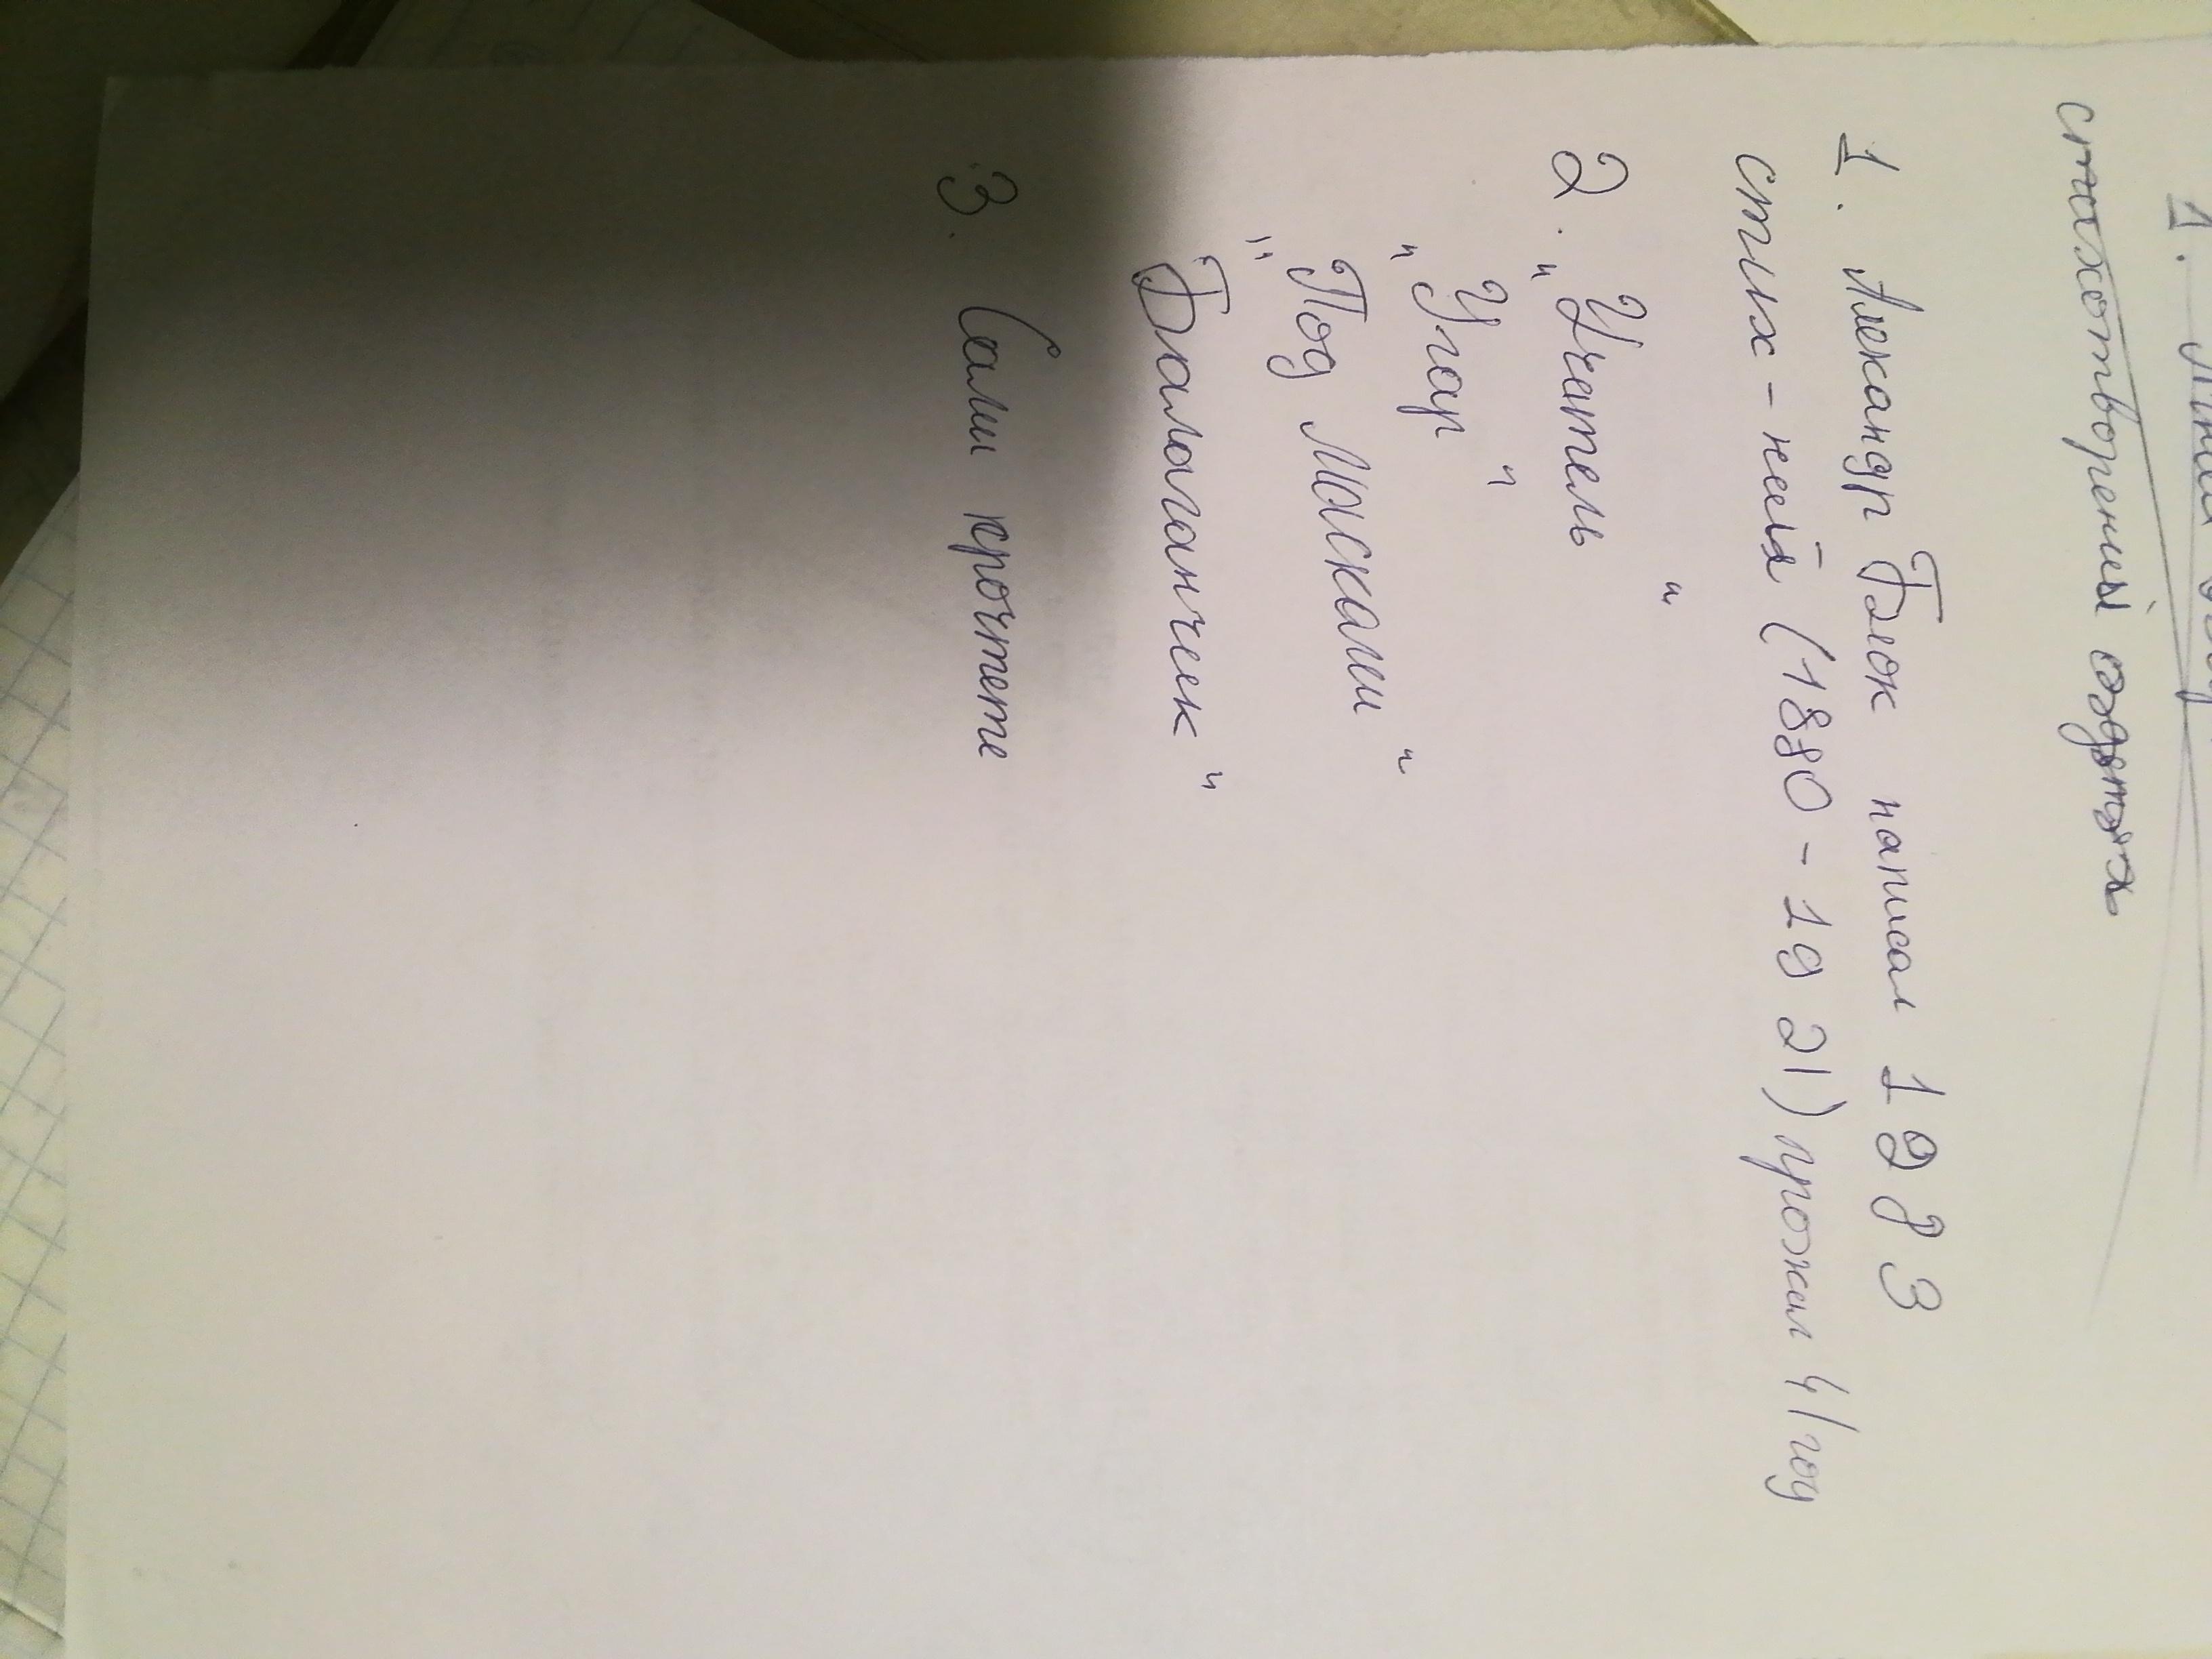 1.
стихотворений
1. Алекандр Блок написал 1283
стих-ней (1880-1921) прожил 41 год
2. "Учитель"
"Угар"
"Под Масками"
"Балаганчик"
3. Сами прочтете